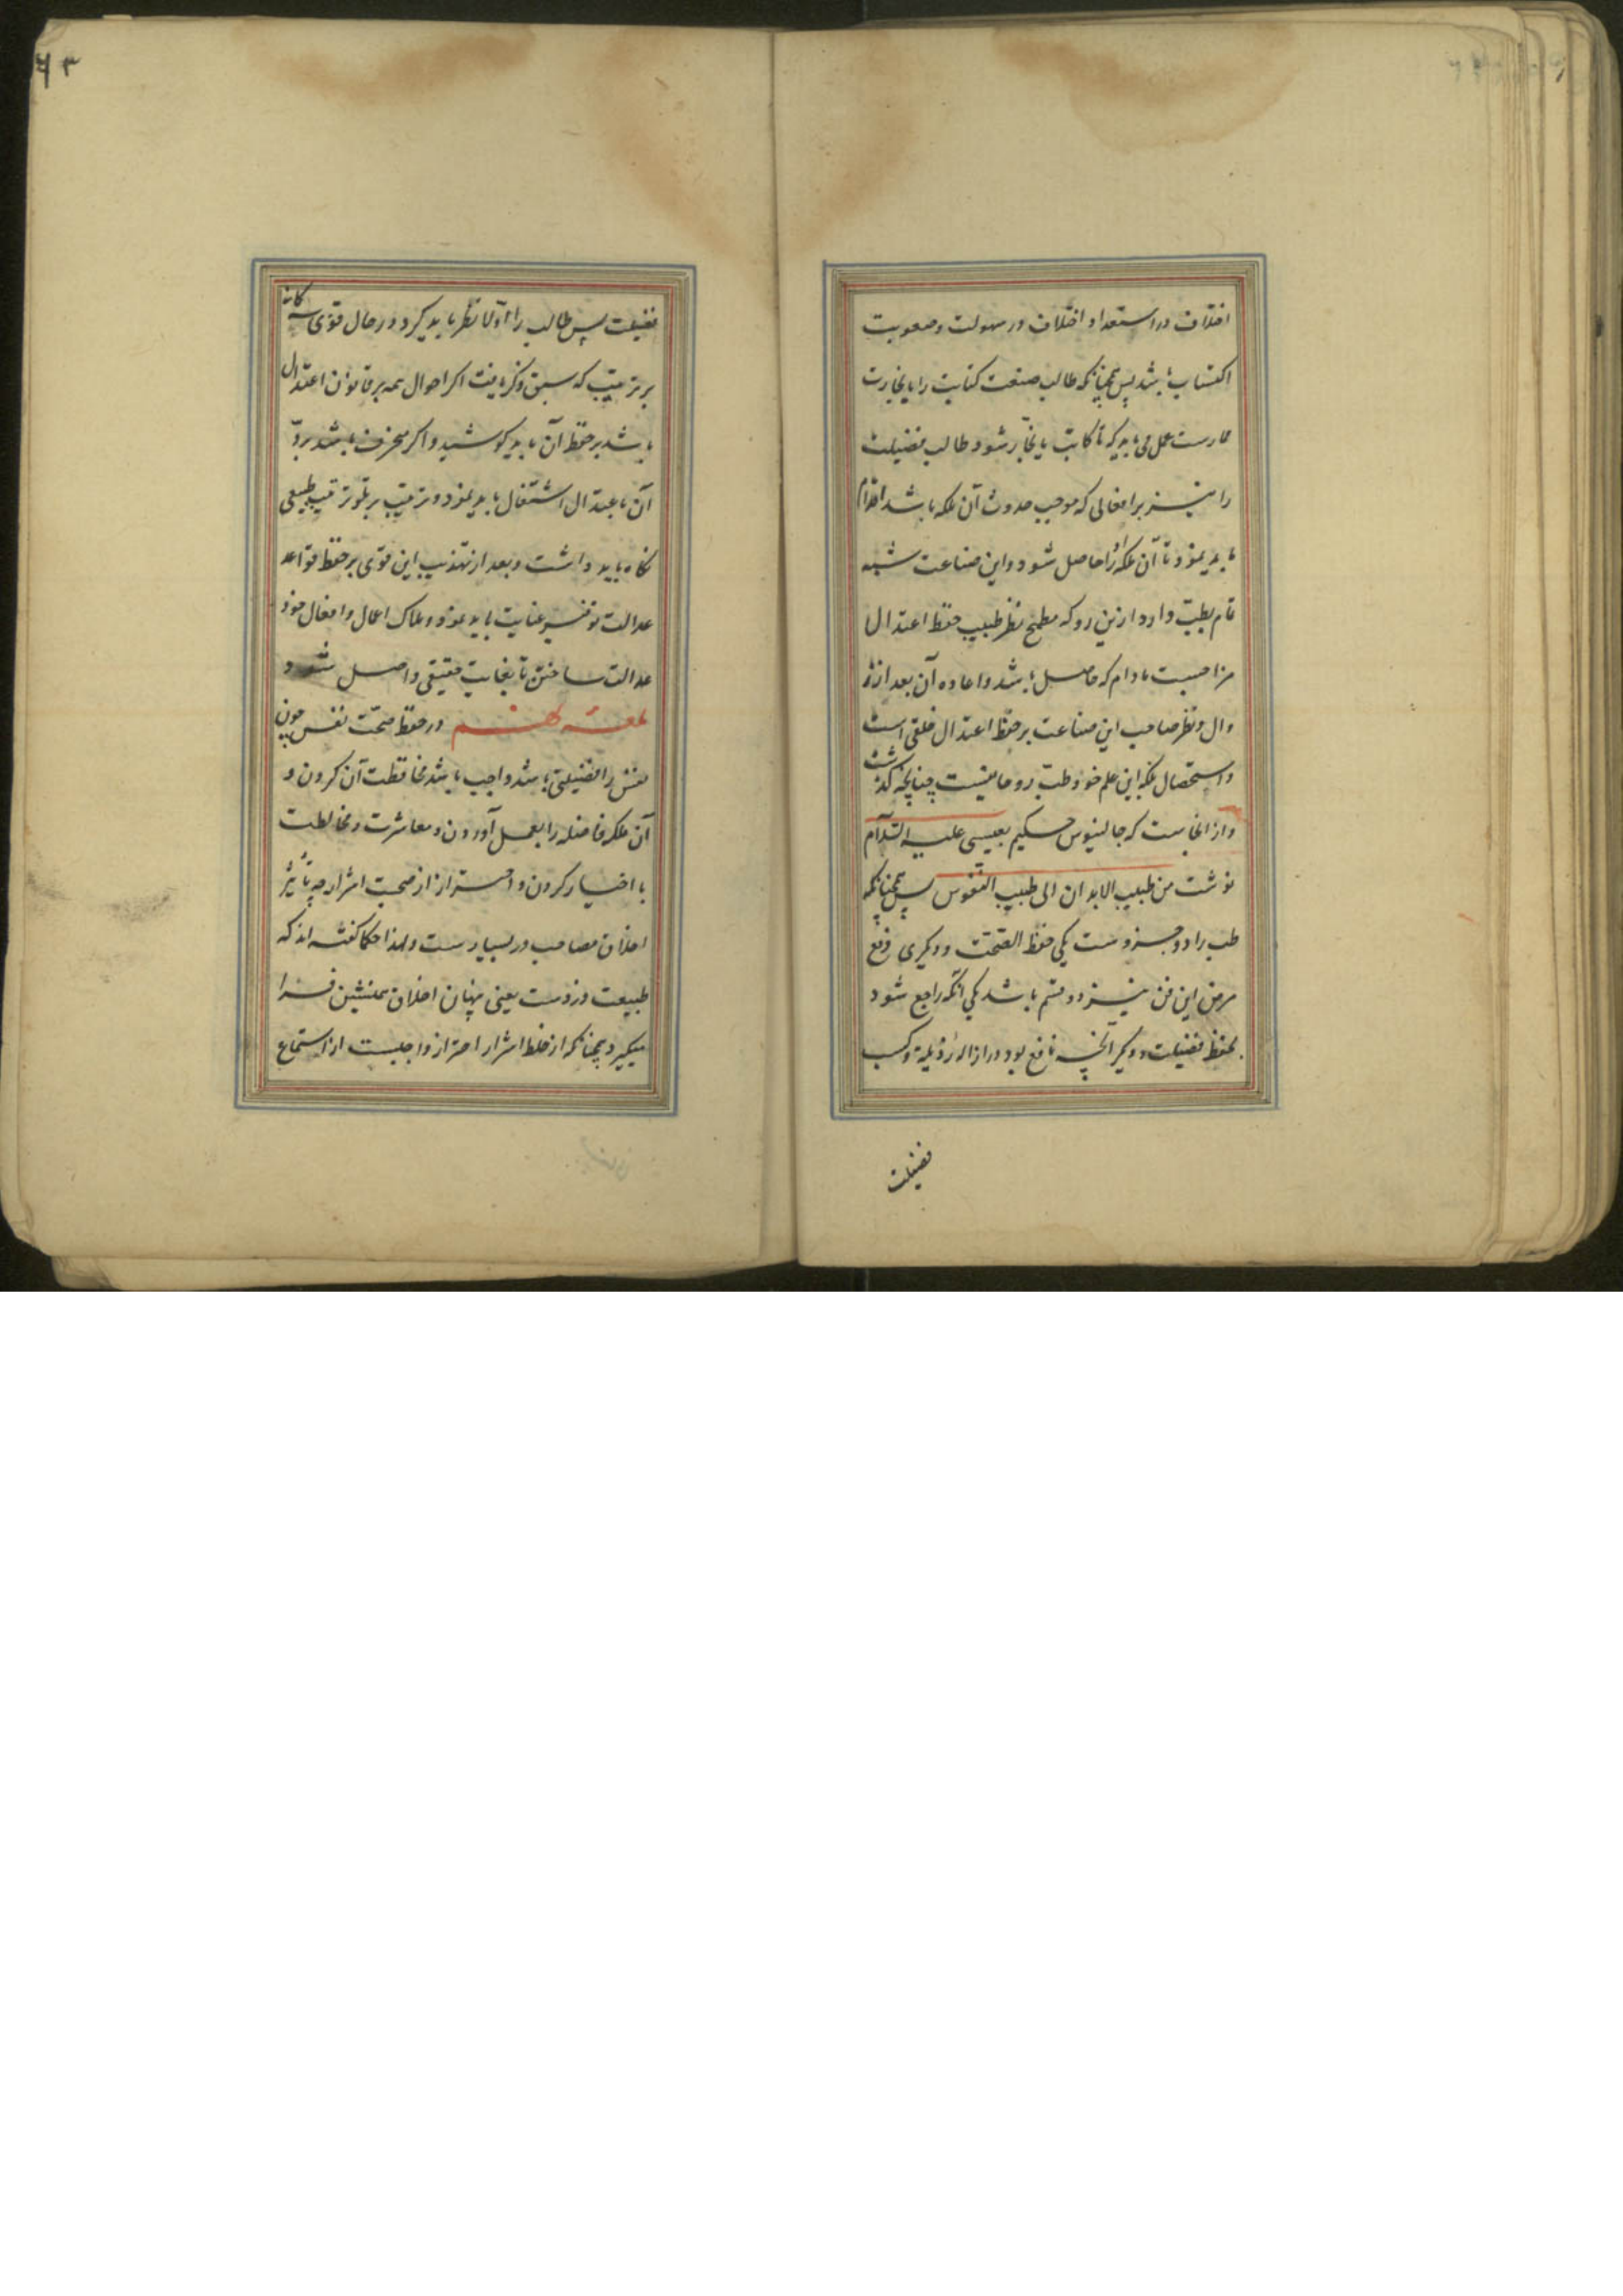 اختلاف در استعداد و اختلاف در سهولت و صعوبت
اکتساب باشد پس همچنانکه طالب صنعت کتابت را یا نجارت
ممارست عمل می باید که تا کاتب یا نجار شود طالب فضیلت
را نیز بر افعالی که موجب حدوث آن ملکه باشد اقدام
باید نمود تا آن ملکه او را حاصل شود و این صناعت شبه
تام بطب دارد از ین رو که مطمح نظر طبیب حفظ اعتدال
مزاجیست مادام که حاصل باشد و اعاده آن بعد از ز
وال و نظر صاحب این صناعت بر حفظ اعتدال خلقی است
و استحصال بلکه این علم خود طب روحانیست چنانچه گذشت
و از انجاست که جالینوس حکیم بعیسی علیه السلام
نوشت من طبیب الابدان الی طبیب النفوس پس همچنانکه
طب را دو جزوست یکی حفظ الصحت و دیگری دفع
مرض این فن نیز دو قسم باشد یکی آنکه راجع شود
بحفظ فضیلت و دیگر آنچه نافع بود در ازاله رذیلة و کسب
فضیلت
۶۳
فضیلت پس طالب را اولا نظر باید کرد در حال قوی سه کانه
بر ترتیب که سبق ذکر یافت اکر احوال همه بر قانون اعتدال
باشد بر حفظ آن باید کوشید و اکر منحرف باشد برد
آن باعتدال اشتغال باید نمود و ترتیب بر تلو ترتیب طبیعی
نکاه باید داشت و بعد از تهذیب این قوی بر حفظ قواعد
عدالت توفیر عنایت باید نمود و ملاک اعمال و افعال خود
عدالت ساختن تا بغایت حقیقی واصل شود
لمعه هشتم در حفظ صحت نفس چون
نفس را فضیلتی باشد واجب باشد محافظت آن کردن و
آن ملکه فاضله را بعمل آوردن و معاشرت و مخالطت
با اخیار کردن و احتراز از صحبت اشرار چه تأثیر
اخلاق مصاحب در بسیارست و لهذا حکما کفته اند که
طبیعت دزدست یعنی پنهان اخلاق همنشین فرا
میکیرد و همچنانکه از خلط اشرار احتراز واجبست از استماع